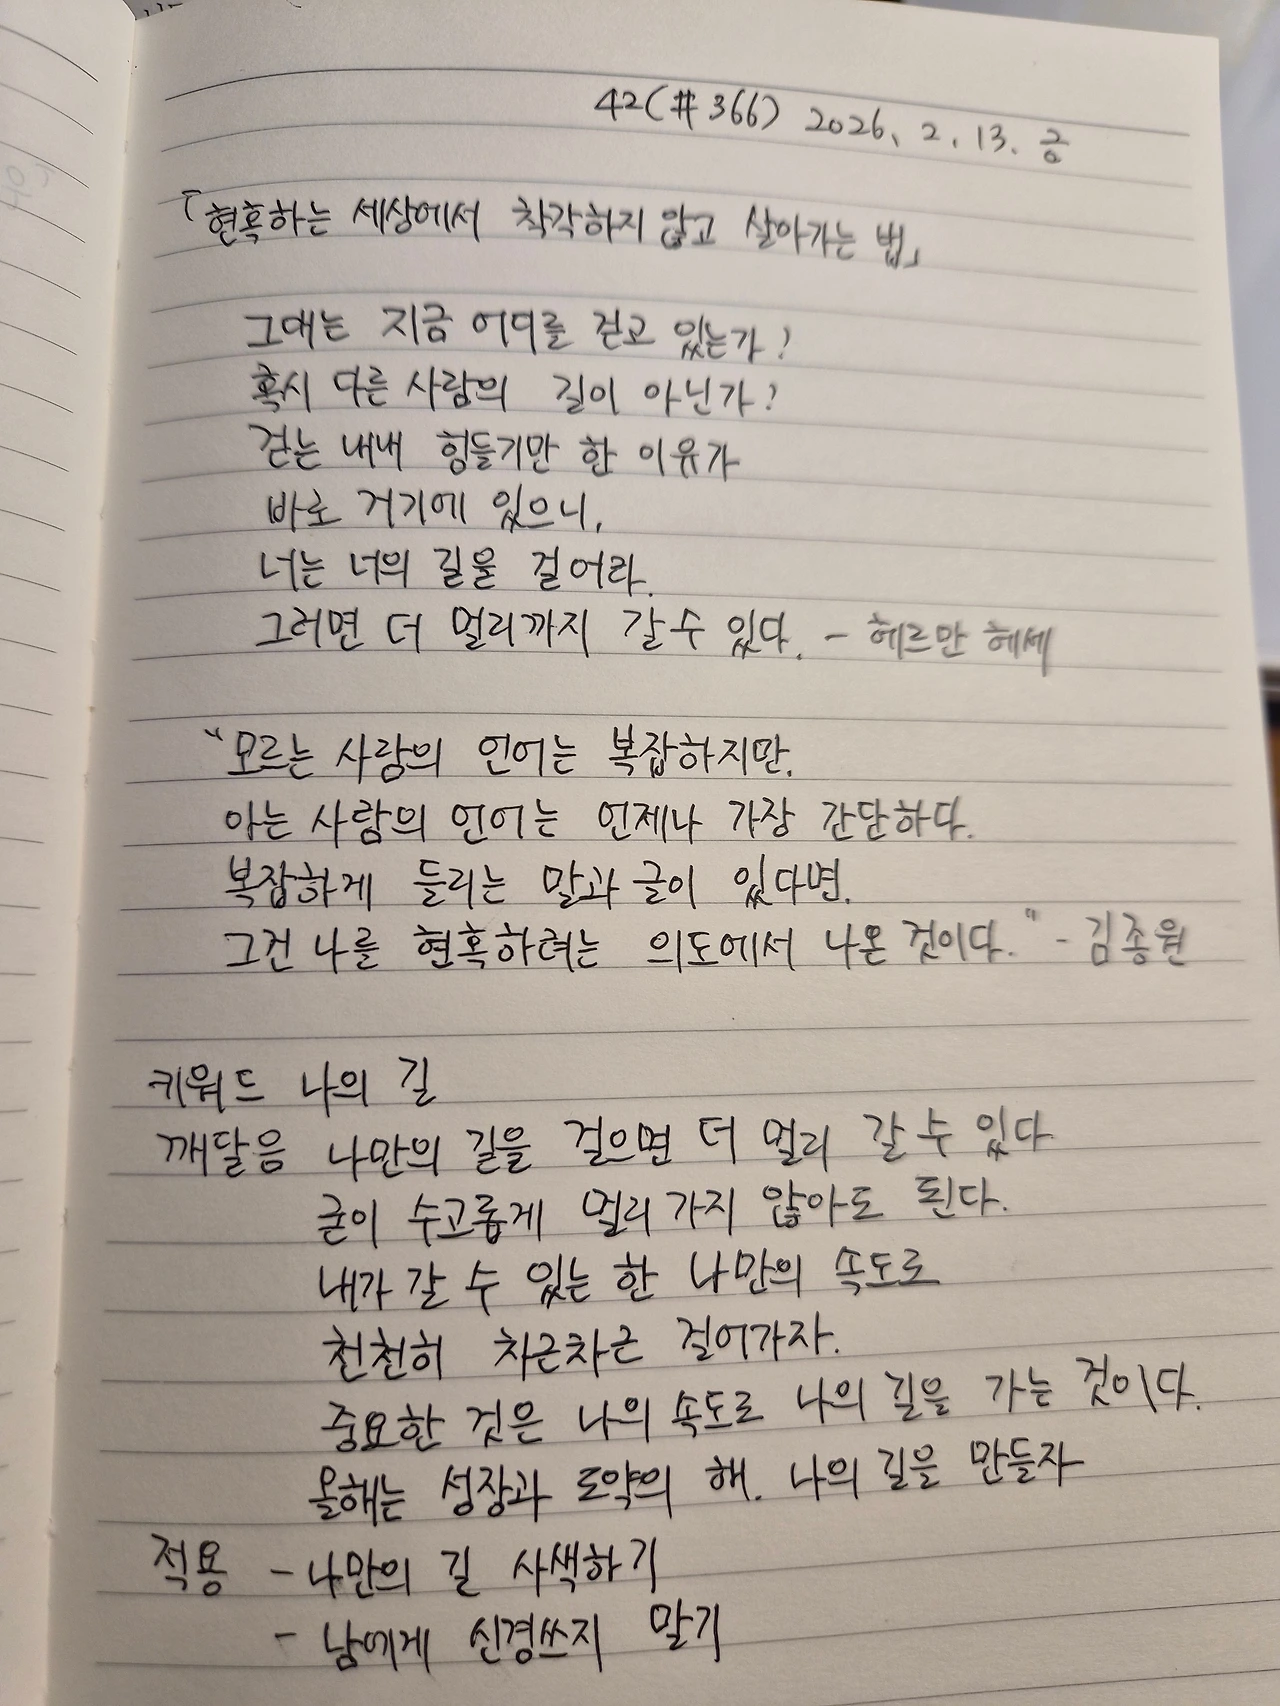 42(#366) 2026. 2. 13. 금
「현혹하는 세상에서 착각하지 않고 살아가는 법」
그대는 지금 어디를 걷고 있는가?
혹시 다른 사람의 길이 아닌가?
걷는 내내 힘들기만 한 이유가
바로 거기에 있으니,
너는 너의 길을 걸어라.
그러면 더 멀리까지 갈 수 있다. - 헤르만 헤세
"모르는 사람의 언어는 복잡하지만,
아는 사람의 언어는 언제나 가장 간단하다.
복잡하게 들리는 말과 글이 있다면,
그건 나를 현혹하려는 의도에서 나온 것이다." - 김종원
키워드 나의 길
깨달음 나만의 길을 걸으면 더 멀리 갈 수 있다
굳이 수고롭게 멀리 가지 않아도 된다.
내가 갈 수 있는 한 나만의 속도로
천천히 차근차근 걸어가자.
중요한 것은 나의 속도로 나의 길을 가는 것이다.
올해는 성장과 도약의 해. 나의 길을 만들자
적용 - 나만의 길 사색하기
- 남에게 신경쓰지 말기